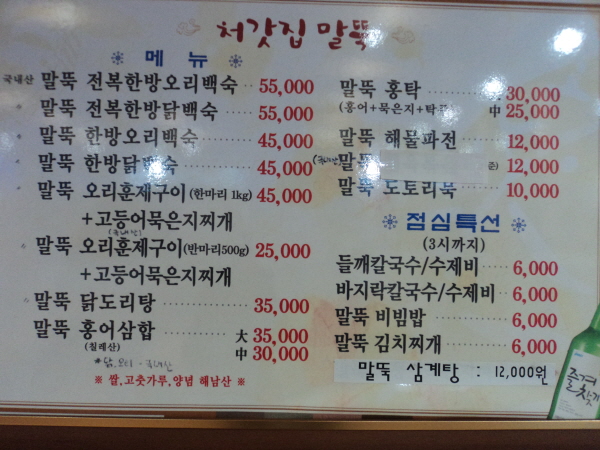 처갓집 말뚝
메 뉴
국내산 말뚝 전복한방오리백숙 ·· 55,000
말뚝 전복한방닭백숙 ······ 55,000
말뚝 한방오리백숙 ········· 45,000
말뚝 한방닭백숙 ············ 45,000
말뚝 오리훈제구이 (한마리 1kg) 45,000
+고등어묵은지찌개
(국내산)
말뚝 오리훈제구이 (반마리500g) 25,000
+고등어묵은지찌개
말뚝 닭도리탕 ·············· 35,000
말뚝 홍어삼합 大 35,000
(칠레산) 中 30,000
*닭,오리-국내산
※ 쌀,고춧가루,양념 해남산 ※
말뚝 홍탁 30,000
(홍어+묵은지+탁주) 中 25,000
말뚝 해물파전 ········ 12,000
(국내산) 말뚝 12,000
말뚝 도토리묵 ········ 10,000
점심특선
(3시까지)
들깨칼국수/수제비 ···· 6,000
바지락칼국수/수제비 ·· 6,000
말뚝 비빔밥 ············ 6,000
말뚝 김치찌개 ·········· 6,000
말뚝 삼계탕 : 12,000원
즐겨
찾기